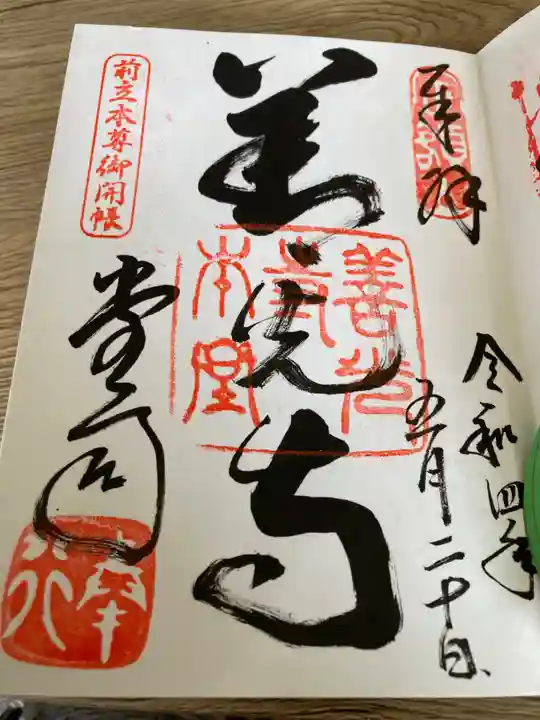 奉拝
令和四年
五月二十日
善光寺
善光寺本堂
前立本尊御開帳
堂司